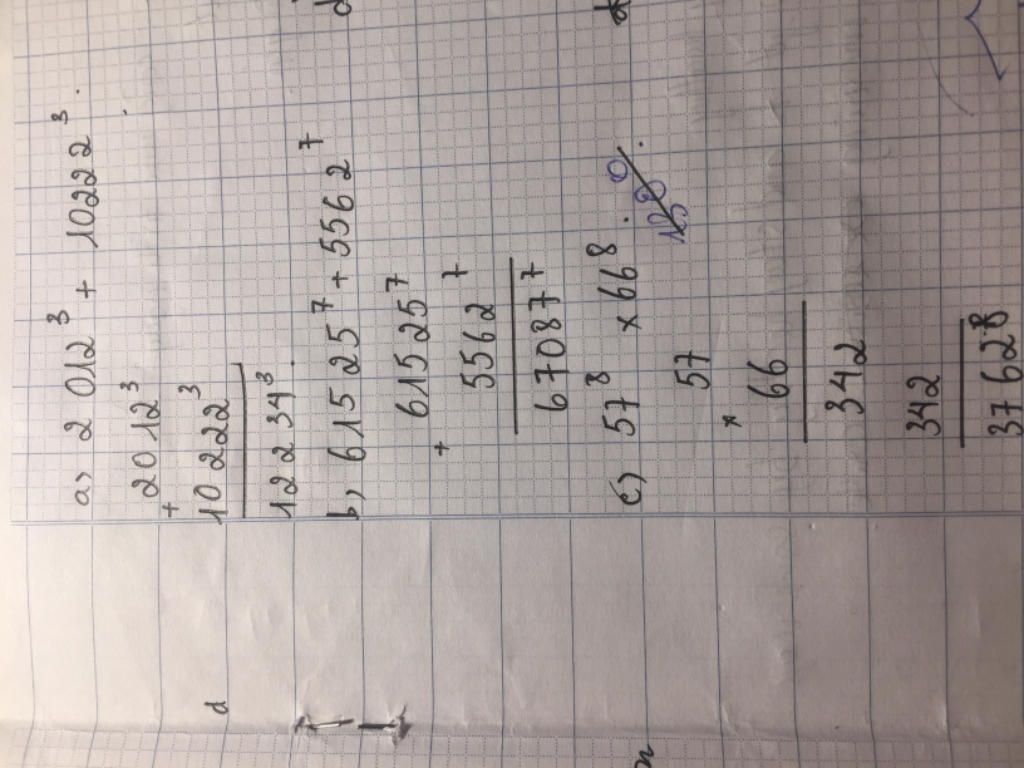 a) 2 012³ + 10222³.
2012³
+
10222³
12234³
b) 615 25⁷ + 5562⁷
61525⁷
+
5562⁷
67087⁷
c) 57⁸ × 66⁸.
57
×
66
342
342
3762.8
d